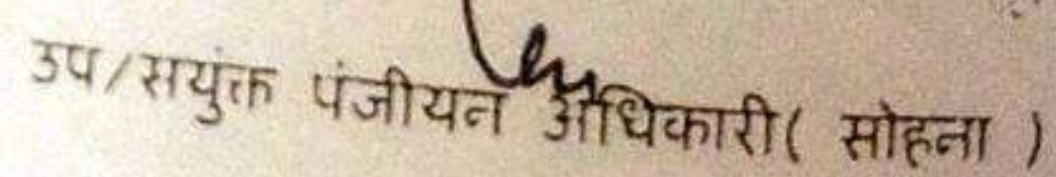 उप/सयुंक्त पंजीयन अधिकारी( सोहना )